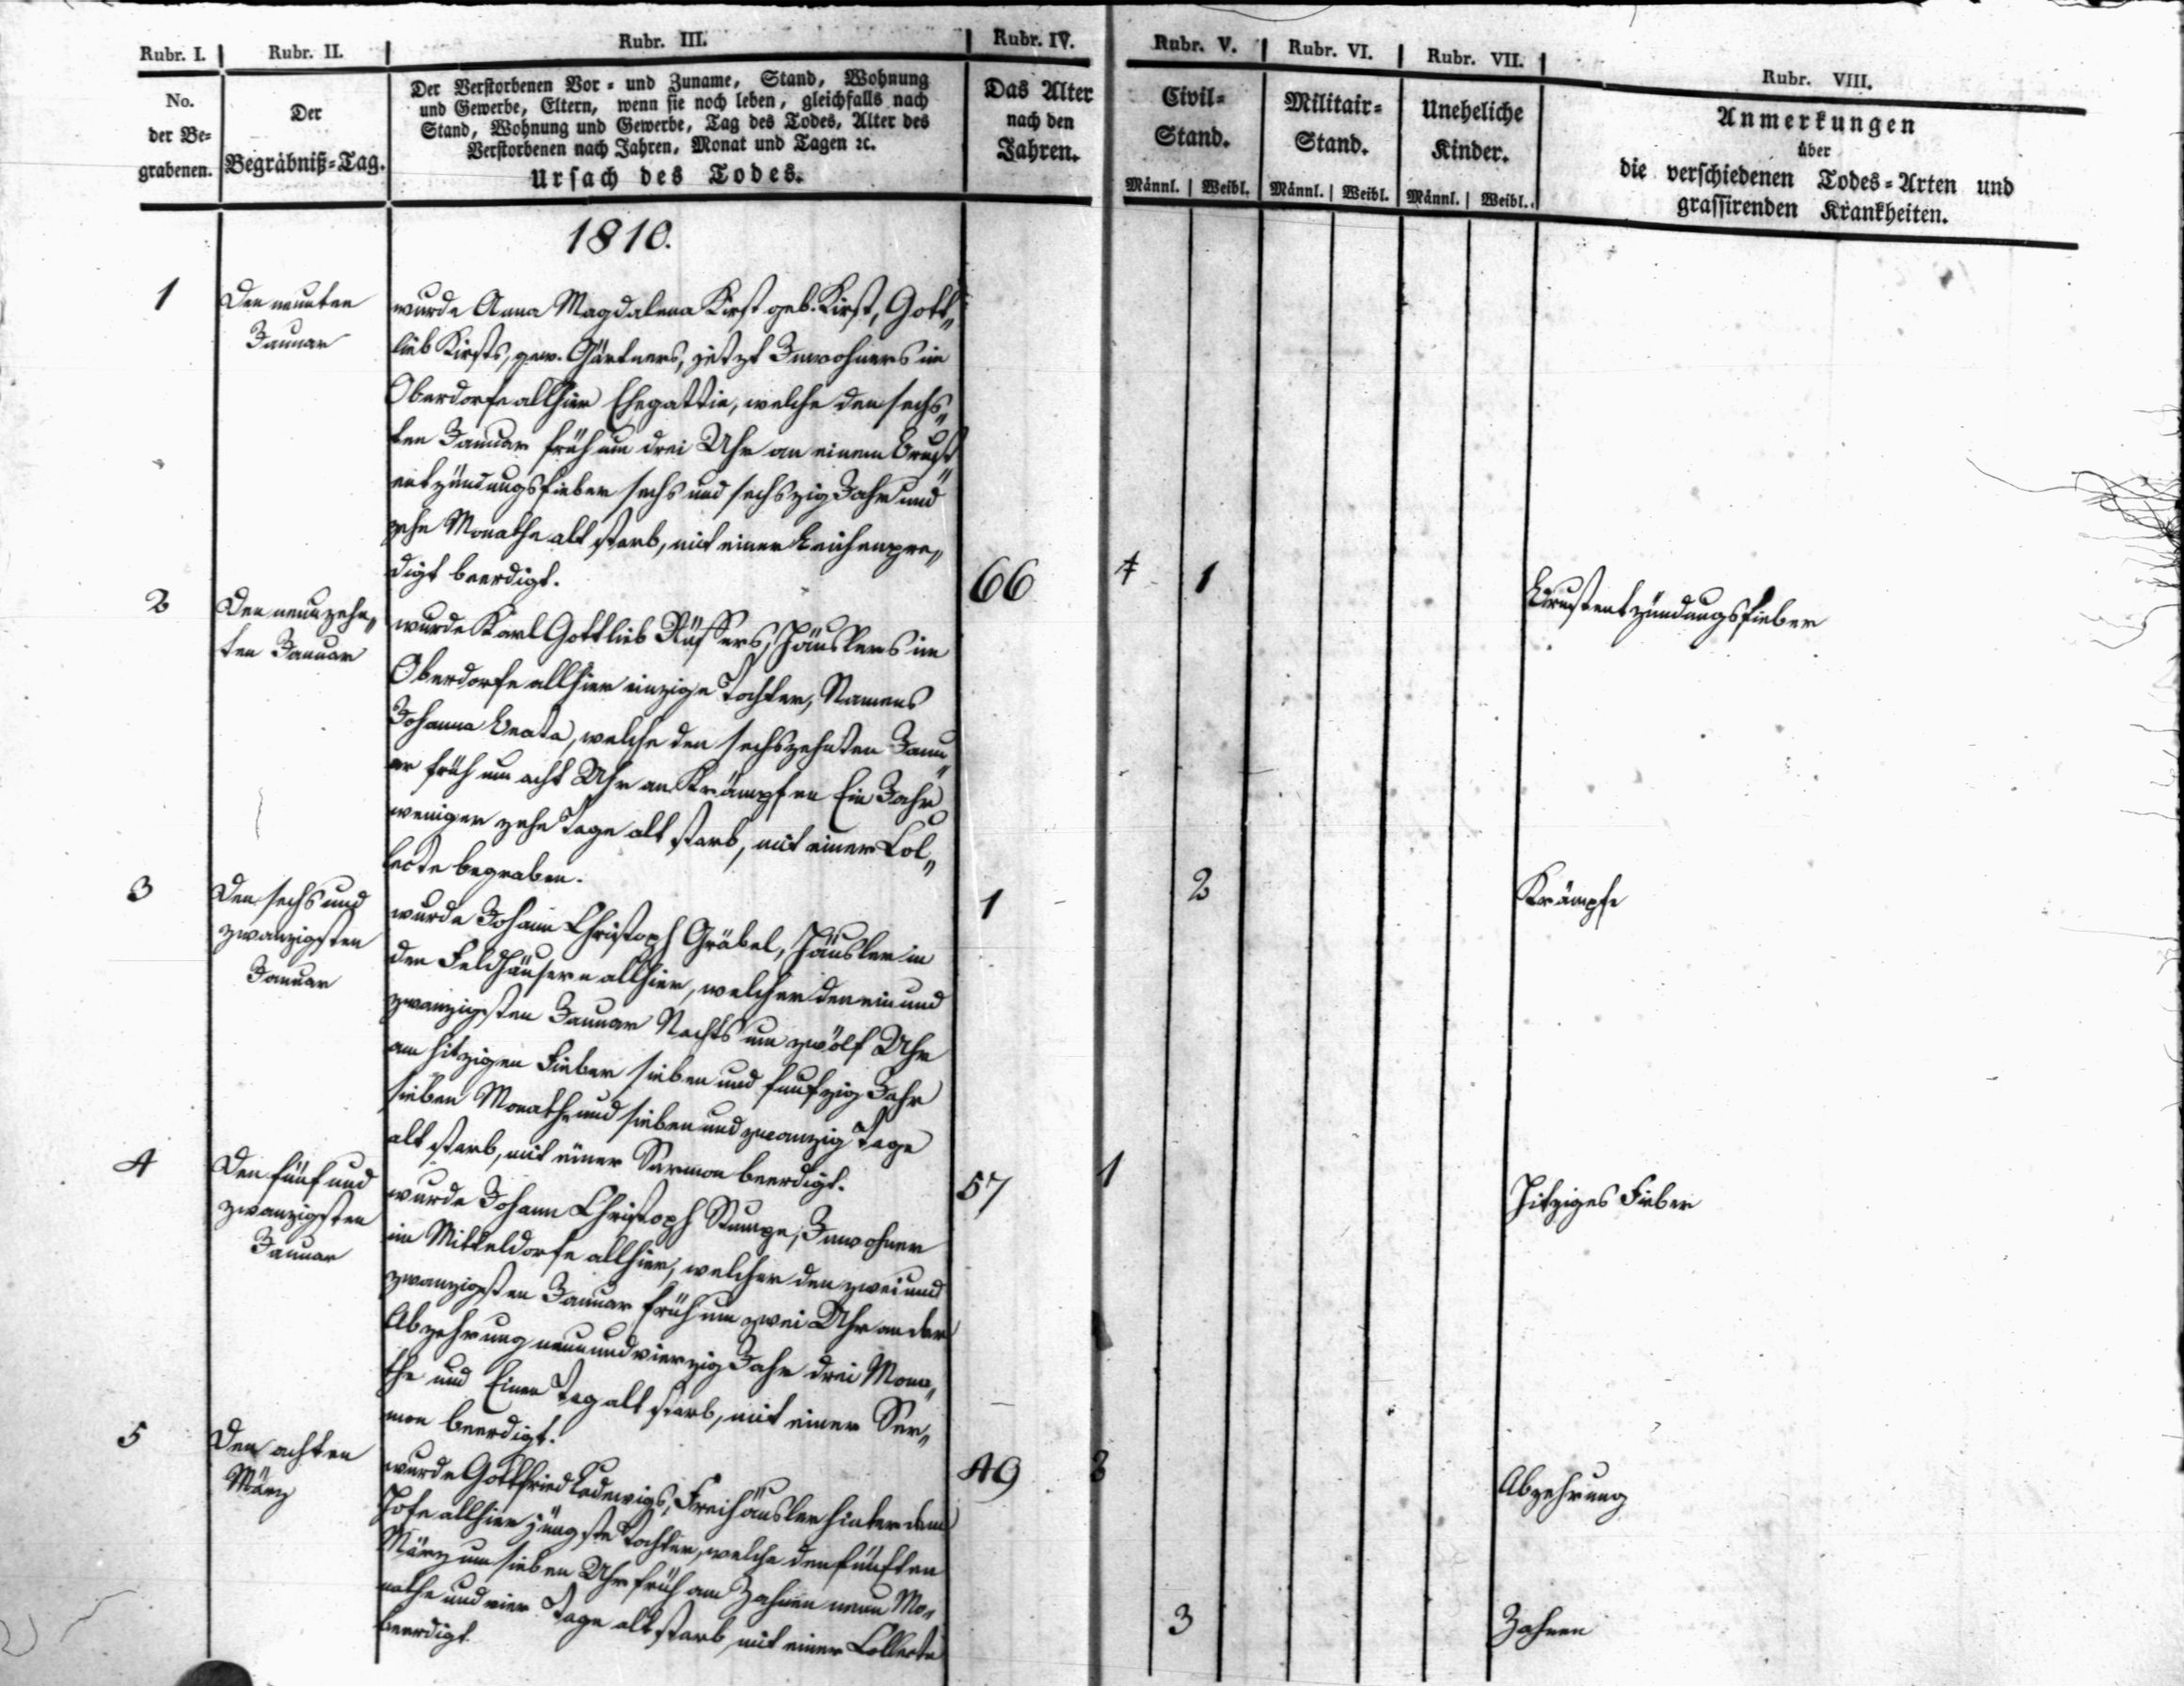 Rubr. I. Rubr. II. Rubr. III. Rubr. IV. Rubr. V. Rubr. VI. Rubr. VII. Rubr. VIII.
No.
der Be-
grabenen.
Der
Begräbniß-Tag.
Der Verstorbenen Vor- und Zuname, Stand, Wohnung
und Gewerbe, Eltern, wenn sie noch leben, gleichfalls nach
Stand, Wohnung und Gewerbe, Tag des Todes, Alter des
Verstorbenen nach Jahren, Monat und Tagen ꝛc.
Ursach des Todes.
Das Alter
nach den
Jahren.
Civil-
Stand.
Männl. Weibl.
Militair-
Stand.
Männl. Weibl.
Uneheliche
Kinder.
Männl. Weibl.
Anmerkungen
über
die verschiedenen Todes-Arten und
grassirenden Krankheiten.
1810.
1
Den neunten
Januar
wurde Anna Magdalena Kirst geb. Kirst, Gott„
lieb Kirsts, gew. Gärtners, jetzt Inwohners im
Oberdorfe allhier Ehegattin, welche den sechs„
ten Januar früh um drei Uhr an einem Brust„
entzündungsfieber sechs und sechszig Jahr und
zehn Monathe alt starb, mit einer Leichenpre„
digt beerdigt.
66
1
Brustentzündungsfieber
2
Den neunzehn„
ten Januar
wurde Karl Gottlieb Rüffers, Häuslers im
Oberdorfe allhier einzige Tochter, Namens
Johanna Beata, welche den sechszehnten Janu„
ar früh um acht Uhr an Krämpfen Ein Jahr
weniger zehn Tage alt starb, mit einer Col„
lecte begraben.
1
2
Krämpfe
3
Den sechs und
zwanzigsten
Januar
wurde Johann Christoph Gräbel, Häusler in
den Feldhäusern allhier, welcher den ein und
zwanzigsten Januar Nachts um zwölf Uhr
am hitzigen Fieber sieben und funfzig Jahr
sieben Monathe und sieben und zwanzig Tage
alt starb, mit einer Sermon beerdigt.
57
1
Hitziges Fieber
4
Den fünf und
zwanzigsten
Januar
wurde Johann Christoph Stumpe, Inwohner
im Mitteldorfe allhier, welcher den zwei und
zwanzigsten Januar früh um zwei Uhr an der
Abzehrung neun und vierzig Jahr drei Mona„
the und Einen Tag alt starb, mit einer Ser„
mon beerdigt.
49
2
Abzehrung
5
Den achten
März
wurde Gottfried Ladewigs, Freihäusler hinter dem
Hofe allhier jüngste Tochter, welche den fünften
März um sieben Uhr früh am Zahnen neun Mo„
nathe und vier Tage alt starb mit einer Collecte
beerdigt.
3
Zahnen